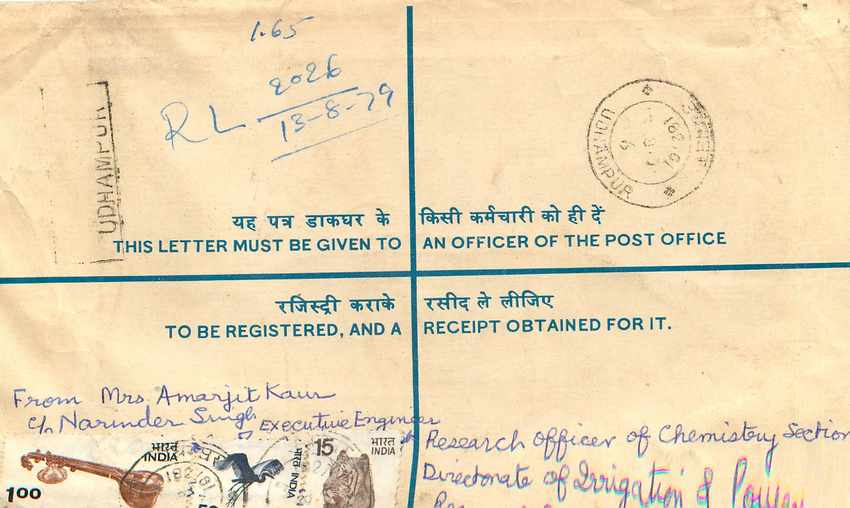 1.65
RL 2026
13-8-79
UDHAMPUR
UDHAMPUR
यह पत्र डाकघर के किसी कर्मचारी को ही दें
THIS LETTER MUST BE GIVEN TO AN OFFICER OF THE POST OFFICE
रजिस्ट्री कराके रसीद ले लीजिए
TO BE REGISTERED, AND A RECEIPT OBTAINED FOR IT.
From Mrs. Amarjit Kaur
c/o Narinder Singh Executive Engineer
Research officer of Chemistry Section
Directorate of Irrigation & Power
भारत
INDIA
1.00
15
भारत INDIA
भारत
INDIA